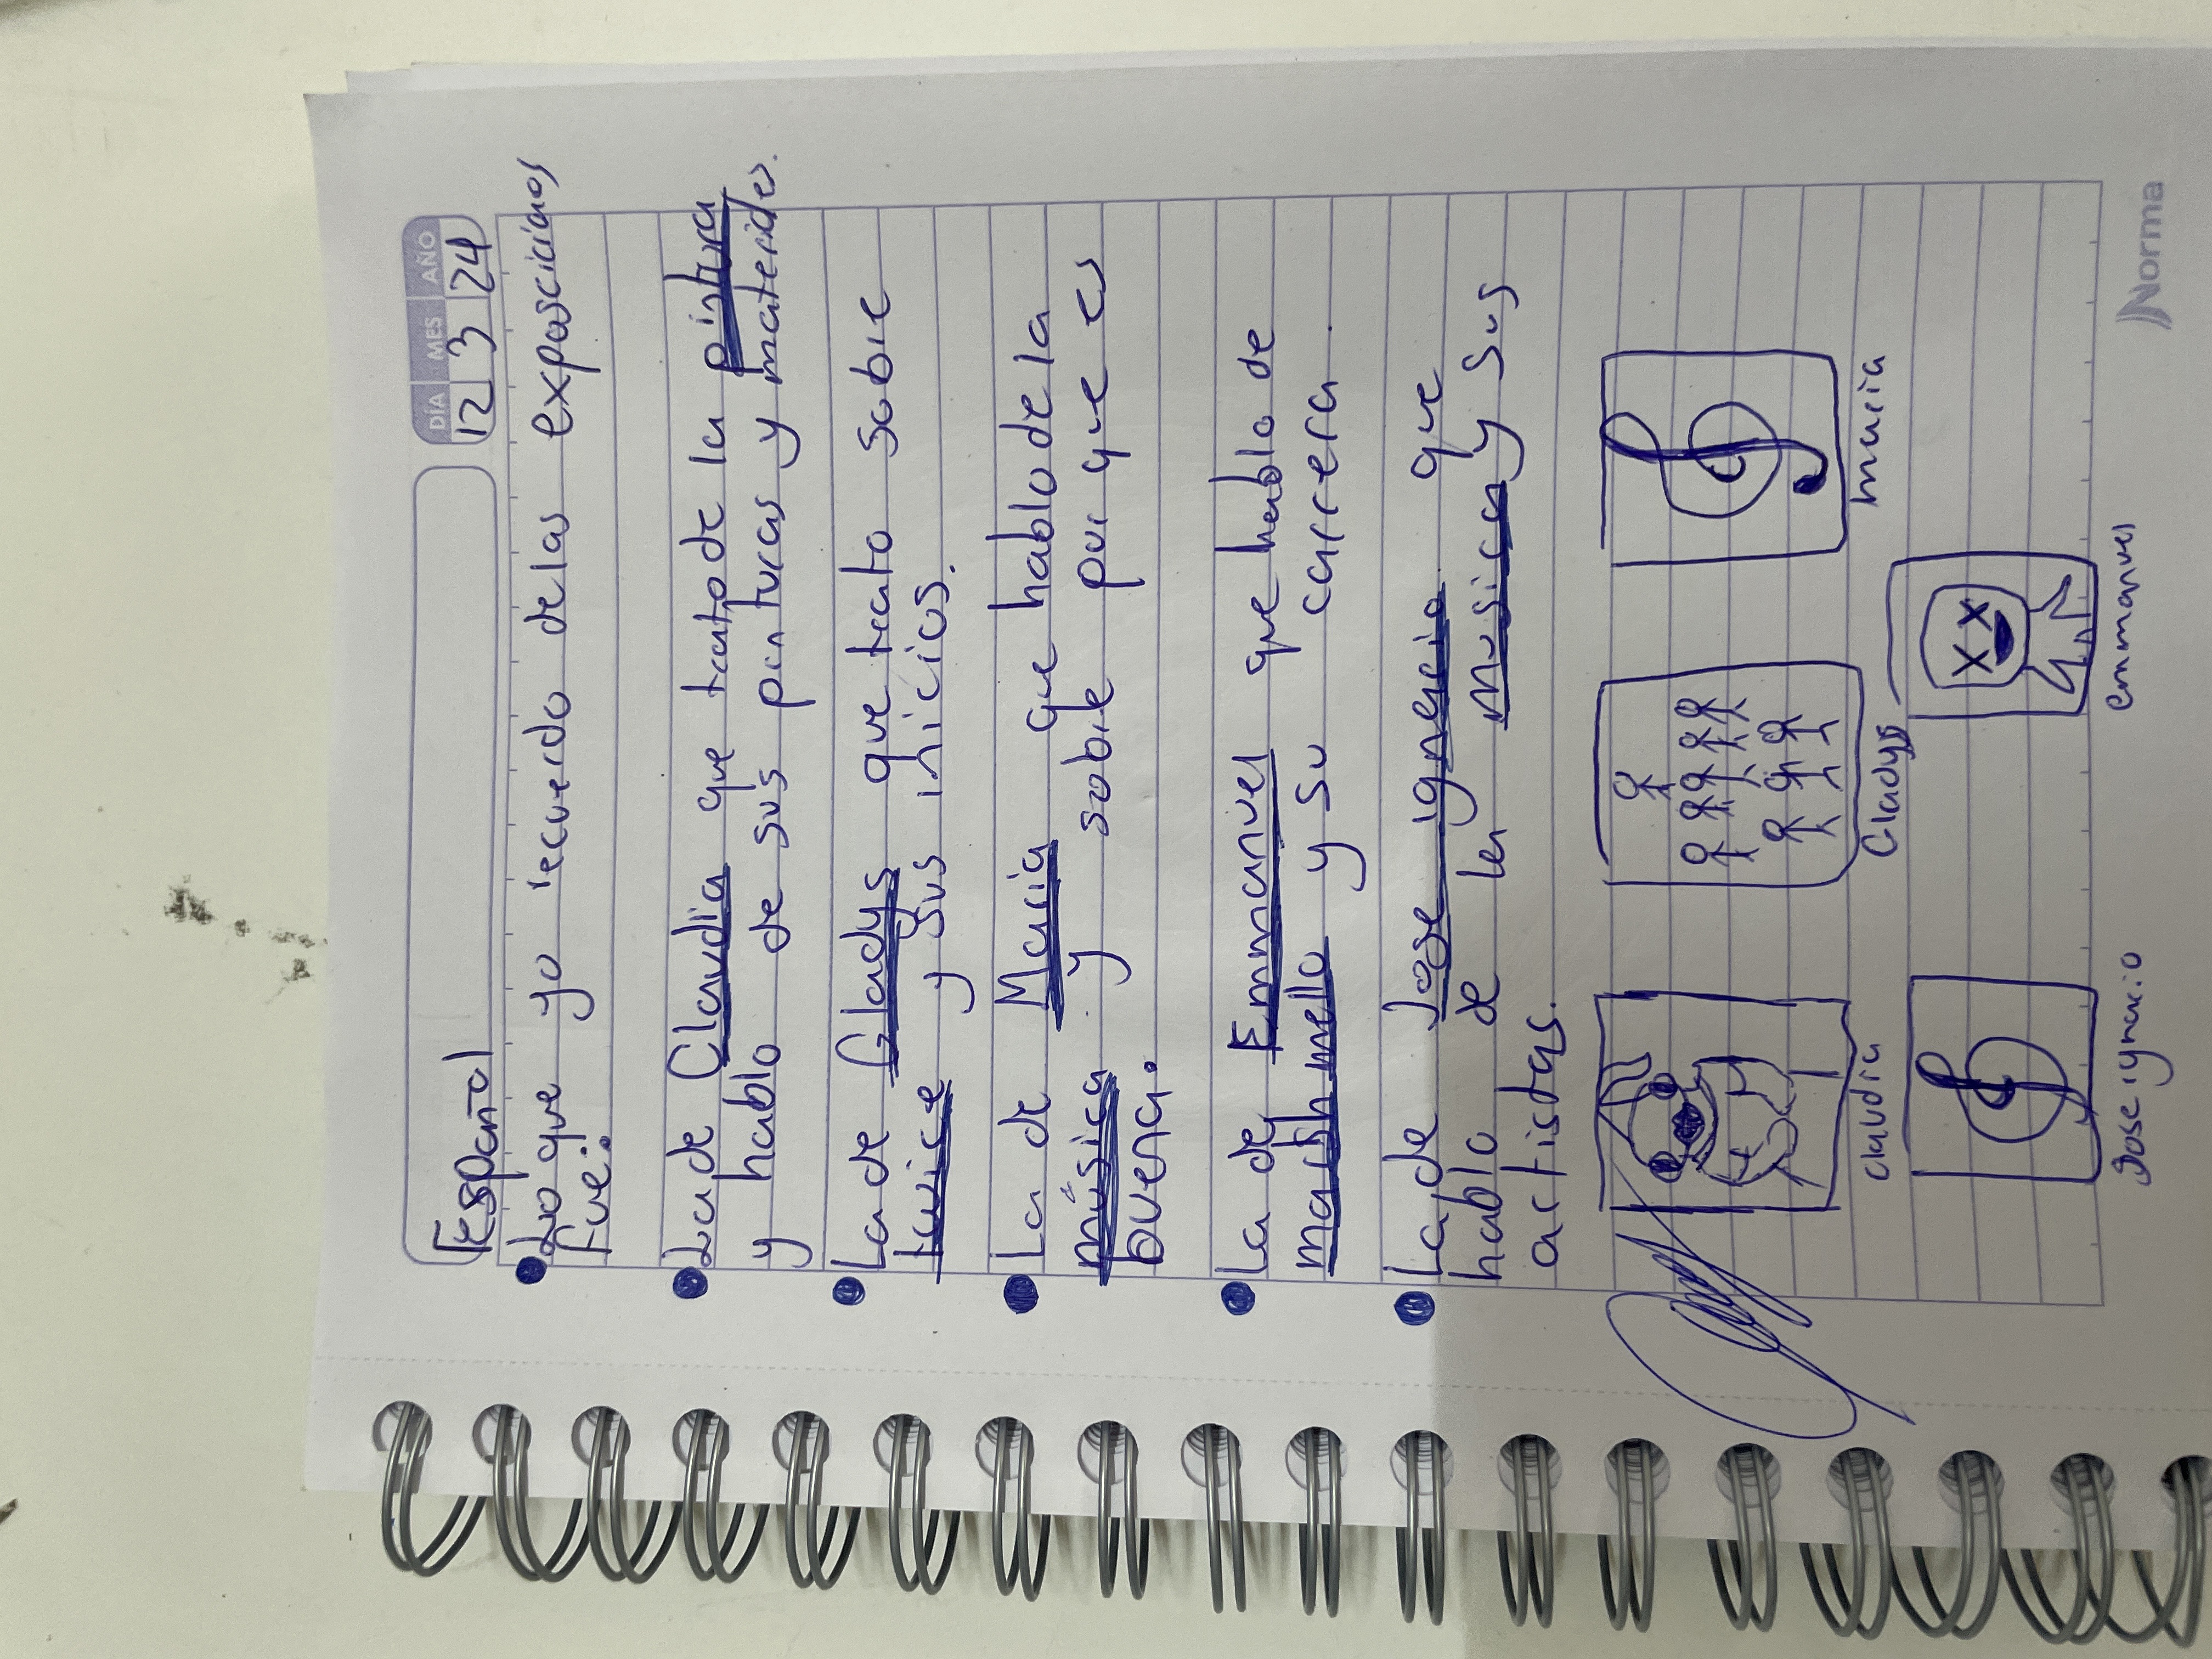 Español
DÍA MES AÑO
12 3 24
Lo que yo recuerdo de las exposciciones
fue:
La de Claudia que trato de la pintura
y hablo de sus pinturas y materiales.
La de Gladys que trato sobre
twice y sus inicios.
La de Maria que hablo de la
música y sobre por que es
buena.
La de Emmanuel que hablo de
mashmello y su carrera.
La de Jose ignacio que
hablo de la musica y sus
artistas.
claudia
Gladys
maria
Jose ignacio
emmanuel
Norma